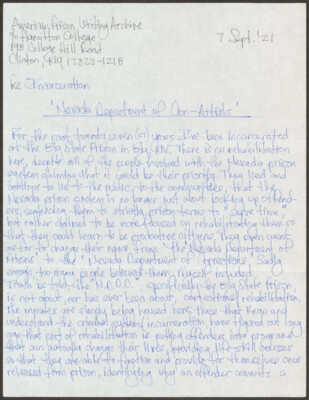 American Prison Writing Archive
c/o Hamilton College
198 College Hill Road
Clinton, NY 13323-1218
7 Sept. '21
Re: Incarceration
"Nevada Department of Con-Artists"
For the past twenty seven (27) years I've been incarcerated
at the Ely State Prison in Ely, NV. There is no rehabilitation
here, despite all of the people involved with the Nevada prison
system claiming that it would be their priority. They lied and
continue to lie to the public, to the that the
Nevada prison system is no longer just about locking up offend-
ers, sentencing them to strictly prison terms to "serve time",
but rather claimed to be more focused on rehabilitating them so
that they could learn to be productive citizens. They even went
as far to change their name from "the Nevada Department of
Prisons" to the "Nevada Department of Corrections". Sadly
enough too many people believed them, myself included.
Truth be told the "N.D.O.C.", specifically for Ely State Prison
is not about, nor has ever been about, corrections/rehabilitation,
the inmates are simply being housed here. Those that know and
understand the criminal system/incarceration have figured out long
ago that part of rehabilitation is putting offenders into programs
that can actually change their lives, providing life skill courses
so that they are able to function and provide for themselves once
released from prison, identifying why an offender commits a